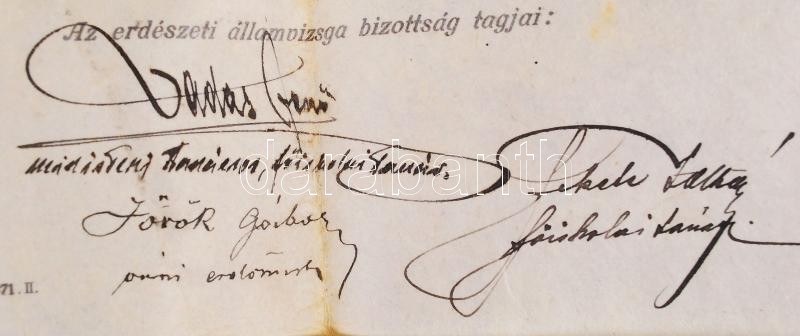 Az erdészeti államvizsga bizottság tagjai:
Vadas Jenő
miniszteri tanácsos, főiskolai tanár.
Fekete Zoltán
főiskolai tanár.
Török Gábor
erdőmester
71. II.
darabanth